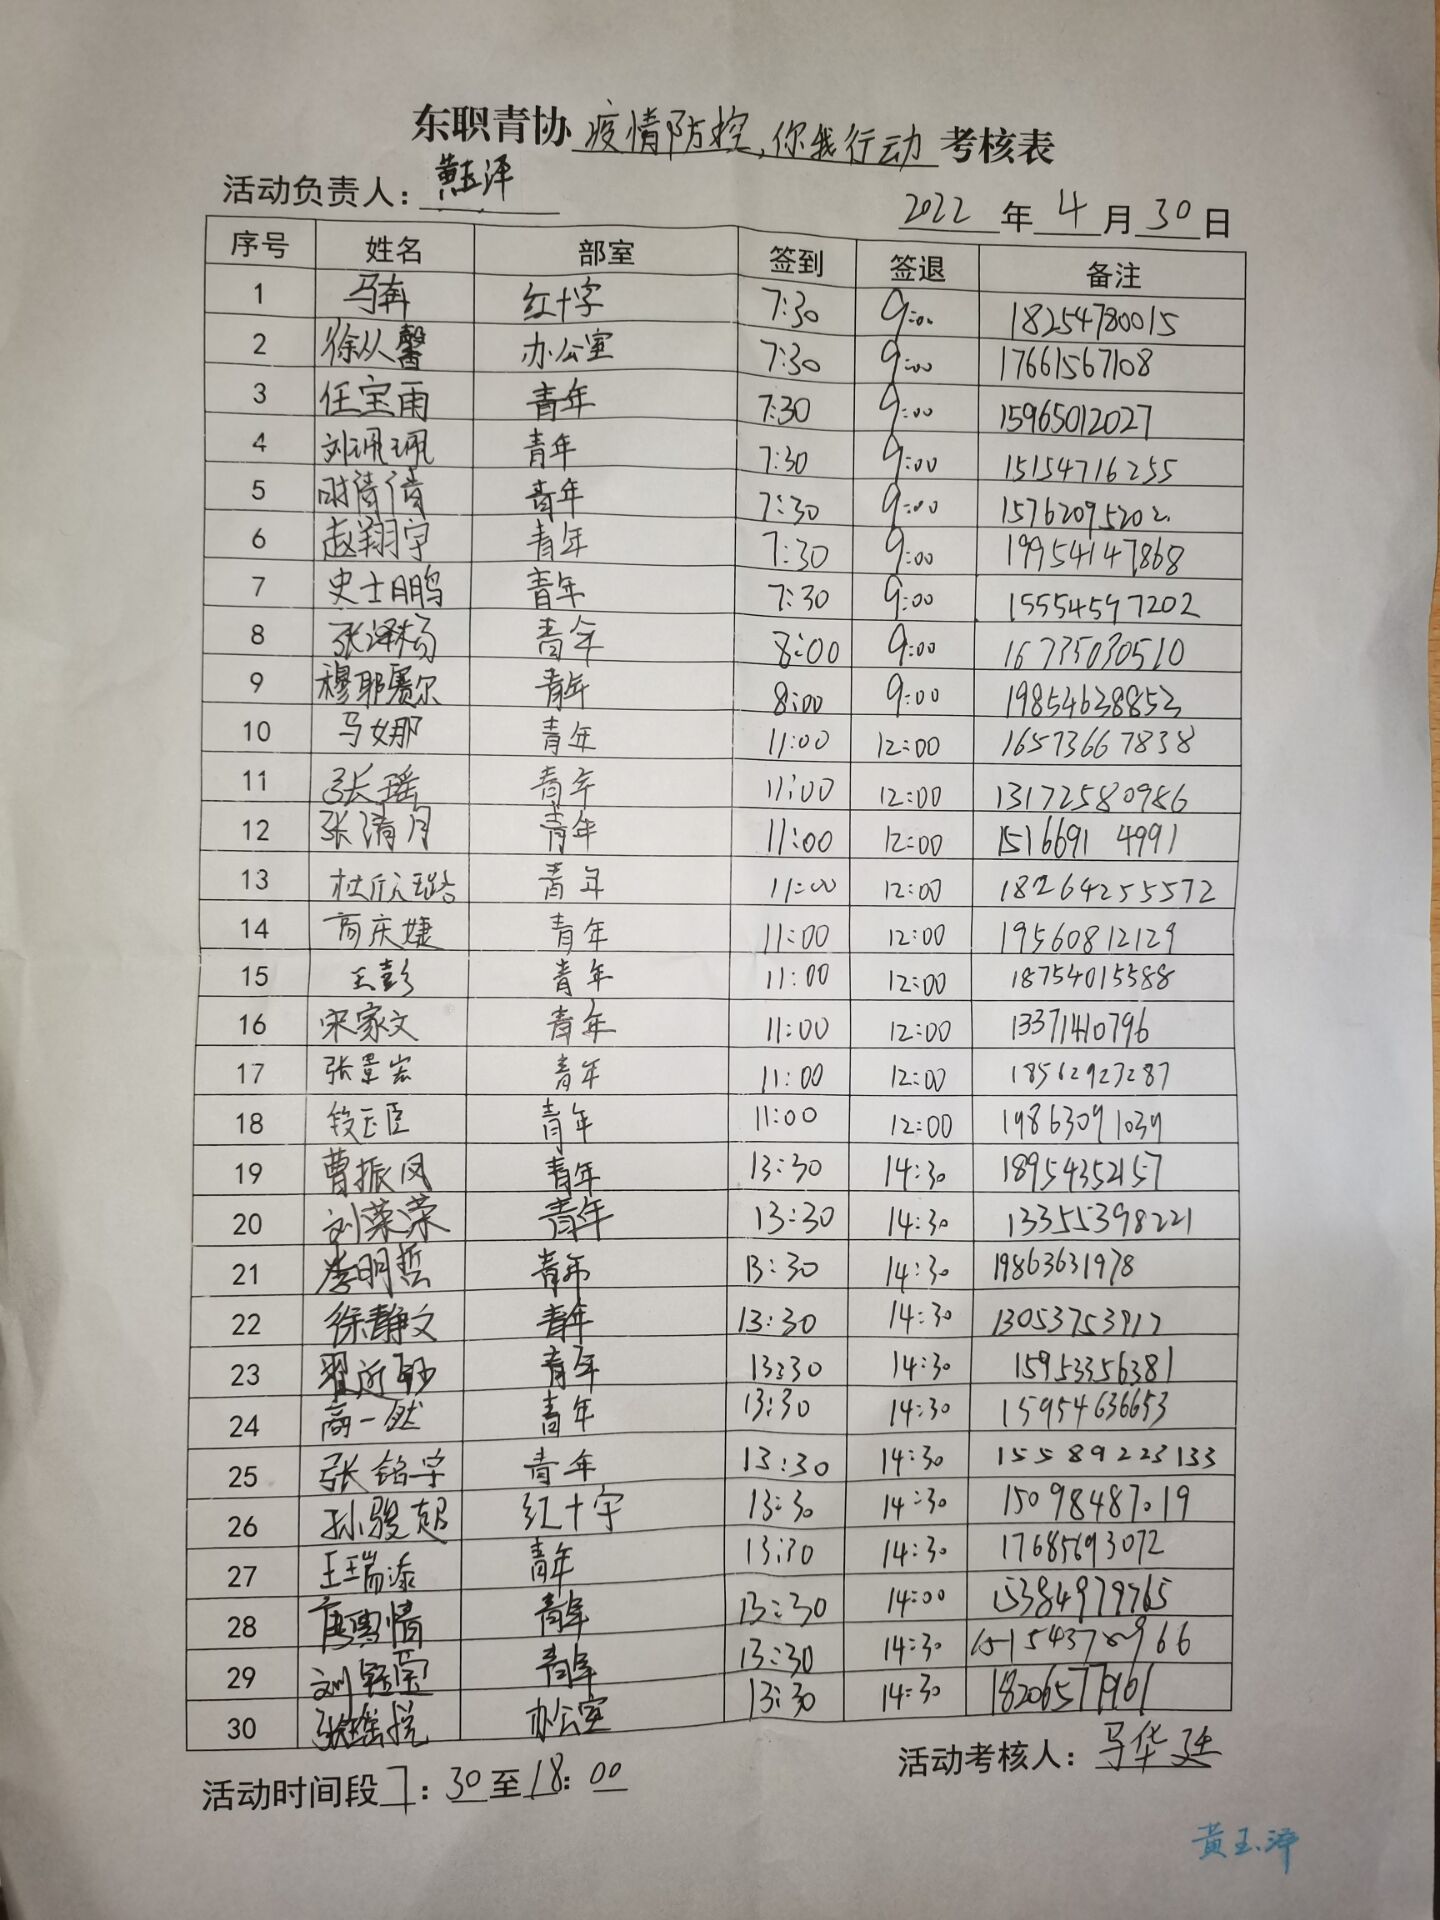 东职青协 疫情防控,你我行动 考核表
活动负责人: 黄玉泽
2022 年 4 月 30 日
序号 姓名 部室 签到 签退 备注
1 马奔 红十字 7:30 9:00 18254780015
2 徐从馨 办公室 7:30 9:00 17661567108
3 任宝雨 青年 7:30 9:00 15965012027
4 刘珮珮 青年 7:30 9:00 15154716255
5 时倩倩 青年 7:30 9:00 15762095202
6 赵翔宇 青年 7:30 9:00 19954147868
7 史士鹏 青年 7:30 9:00 15554597202
8 张泽杨 青年 8:00 9:00 16735030510
9 穆耶赛尔 青年 8:00 9:00 19854638853
10 马女那 青年 11:00 12:00 16573667838
11 张瑶 青年 11:00 12:00 13172580986
12 张清月 青年 11:00 12:00 1516691 4991
13 杜欣璐 青年 11:00 12:00 18264255572
14 高庆婕 青年 11:00 12:00 19560812129
15 王彭 青年 11:00 12:00 18754015588
16 宋家文 青年 11:00 12:00 13371410796
17 张景宏 青年 11:00 12:00 18562923287
18 段玉臣 青年 11:00 12:00 19863091039
19 曹振凤 青年 13:30 14:30 18954352157
20 刘荣荣 青年 13:30 14:30 13355398221
21 李明哲 青年 13:30 14:30 19863631978
22 徐静文 青年 13:30 14:30 13053753917
23 翟所钞 青年 13:30 14:30 15953356381
24 高一然 青年 13:30 14:30 15954636653
25 张铭宇 青年 13:30 14:30 155 89223133
26 孙骏超 红十字 13:30 14:30 15098487019
27 王瑞添 青年 13:30 14:30 17685693072
28 青年 13:30 14:00 15384979765
29 刘钰莹 青年 13:30 14:30
30 张瑶悦 办公室 13:30 14:30 18206577961
活动考核人: 马华廷
活动时间段 7:30 至 18:00
黄玉泽